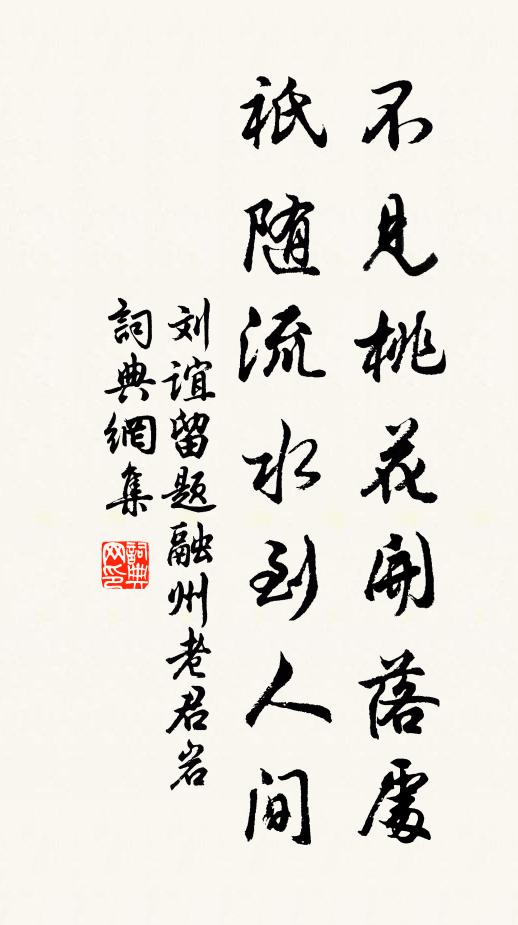 不见桃花开落处
祇随流水到人间
刘谊留题融州老君岩
詞典網集
詞典网印